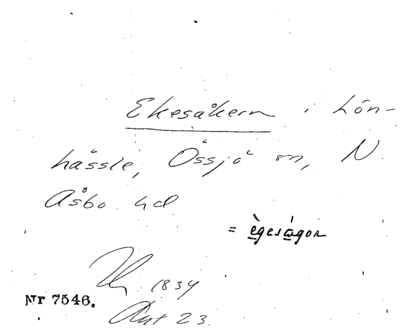 Ekesåkern i Lön-
hässle, Össjö sn, N.
Åsbo hd
= ègeságon
1834
Nr 7546.
Akt 23.